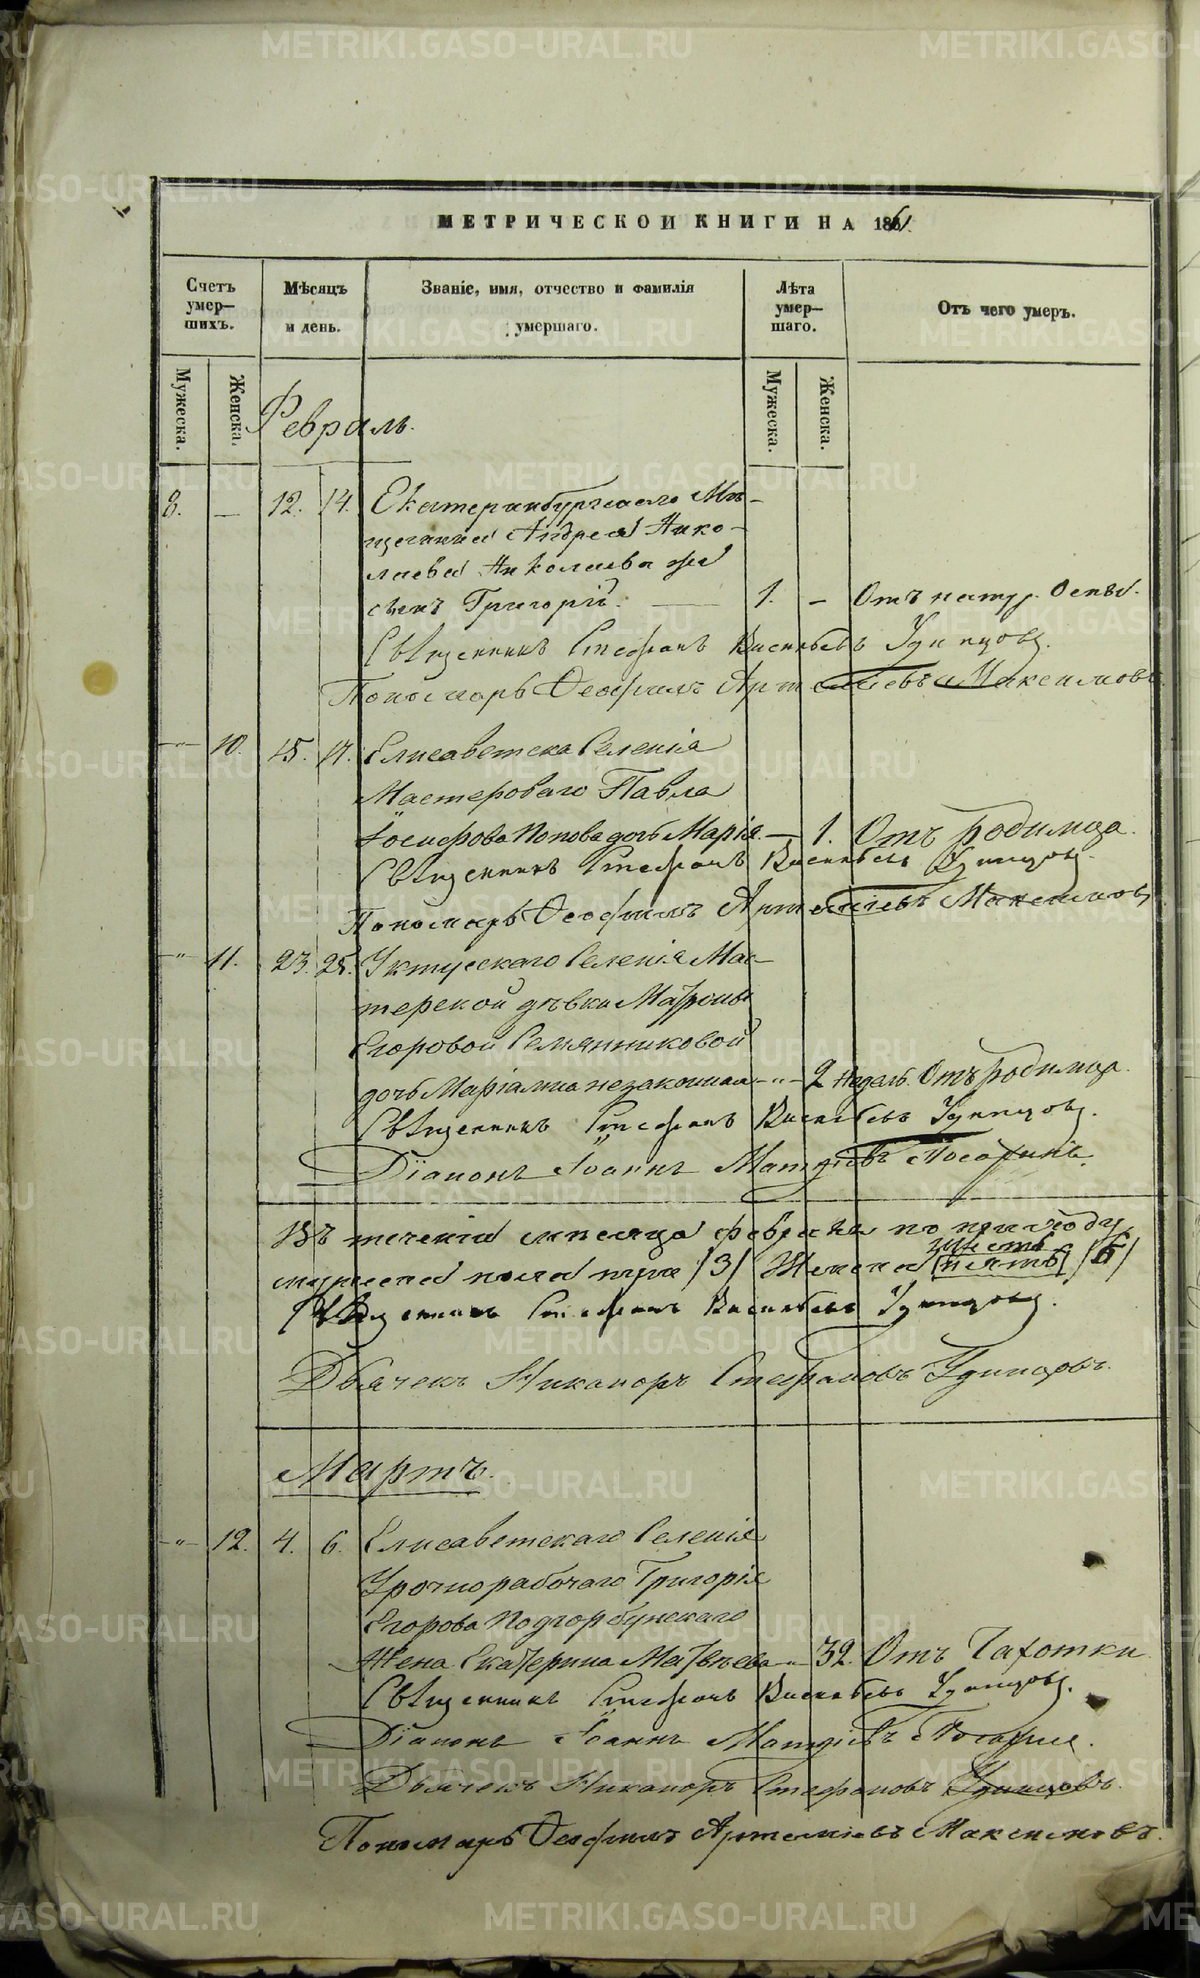 МЕТРИЧЕСКОЙ КНИГИ НА 1861.
Счетъ умер- шихъ.
Мѣсяцъ и день.
Званіе, имя, отчество и фамилія умершаго.
Лѣта умер- шаго.
Отъ чего умеръ.
Мужеска.
Женска.
Мужеска.
Женска.
Февраль.
8. — 12. 14. Екатеринбургскаго Мѣ-
щанина Андрея Нико-
лаева Николаева же
сынъ Григорій. — 1. — Отъ натур. Оспы.
Священникъ Стефанъ Васильевъ Удинцовъ.
Пономарь Ѳеофилъ Артемьевъ Максимовъ
-"- 10. 15. 17. Елисаветска Селенія
Мастероваго Павла
Іосифова Попова дочь Марія. — 1. Отъ родимца.
Священникъ Стефанъ Васильевъ Удинцовъ.
Пономарь Ѳеофилъ Артемьевъ Максимовъ
-"- 11. 23. 25. Уктусскаго Селенія Мас-
терской дѣвки Матроны
Егоровой Семянниковой
дочь Маріамна незаконная -"- 2 недѣль. Отъ родимца.
Священникъ Стефанъ Васильевъ Удинцовъ.
Діаконъ Іоаннъ
Въ теченіи мѣсяца февраля по приходу
шесть
мужеска пола три /3/ Женска (пять) /6/
Священникъ Стефанъ Васильевъ Удинцовъ.
Дьячекъ Никаноръ Стефановъ Удинцовъ.
Мартъ.
-"- 12. 4. 6. Елисаветскаго Селенія
Урочнорабочаго Григорія
Егорова Подгорбунскаго
Жена Екатерина Матвѣева -"- 32. Отъ Чахотки
Священникъ Стефанъ Васильевъ Удинцовъ.
Діаконъ Іоаннъ
Дьячекъ Никаноръ Стефановъ Удинцовъ.
Пономарь Ѳеофилъ Артемьевъ Максимовъ.
METRIKI.GASO-URAL.RU